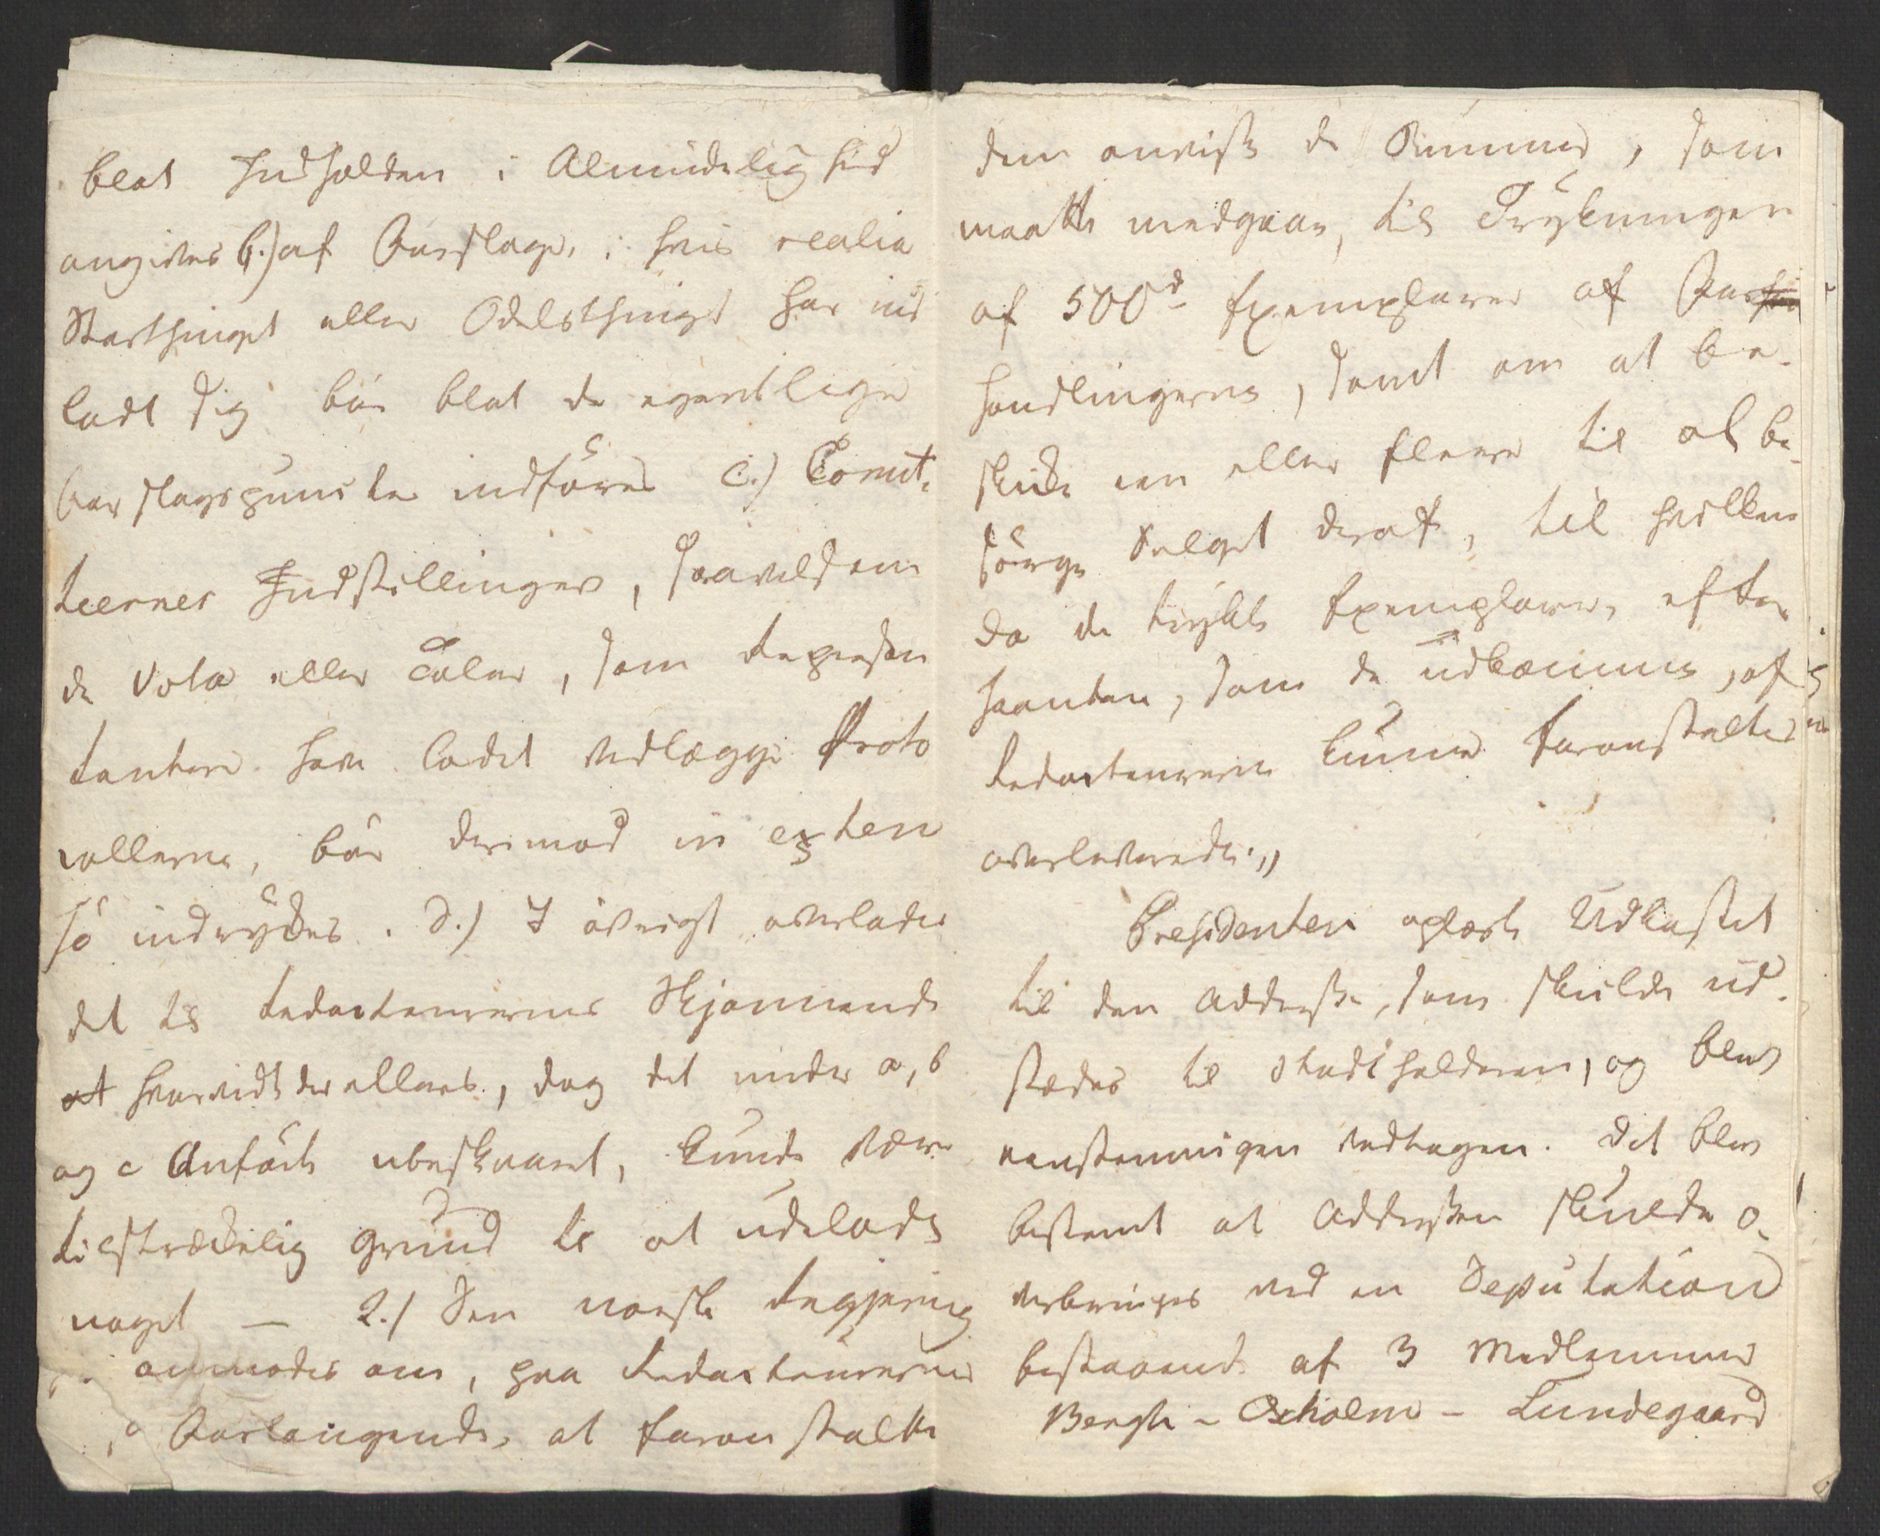 blot Indholden i Almindelighed
angives b.) af Forslage, i hvis realia
Storthinget eller Odelsthinget har ind
ladt sig bør blot de egentlige
Forslagspuncter indføres c.) Comit-
teernes Indstillinger, saavelsom
de Vota eller Taler, som Repræsen
tanterne have ladet vedlægge Proto
collerne, bør derimod in exten
so indrykkes. d.) I øvrigt overlades
det til Redacteurernes Skjønnende
hvorvidt der ellers, dog det under a, b
og c Anførte ubeskaaret, kunde være
tilstrækkelig Grund til at udelade
noget — 2.) Den norske Regjering
anmodes om, paa Redacteurernes
Forlangende, at foranstalte
dem anviste de Summer, som
maatte medgaae, til Trykningen
af 500d Exemplarer af For
handlingerne, samt om at be-
skikke een eller fleere til at be-
sørge Salget deraf, til hvilken
da de trykte Exemplarer, efter
haanden, som de udkomme, af
Redacteurerne kunne foranstaltes
overleverede.„
Præsidenten oplæste Udkastet
til den Addresse, som skulde ud-
stædes til Stadtholderen, og blev
eenstemmigen vedtagen. Det blev
bestemt at Addressen skulde o-
verbringes ved en Deputation
bestaaende af 3 Medlemmer
Bergh - Oxholm - Lundegaard